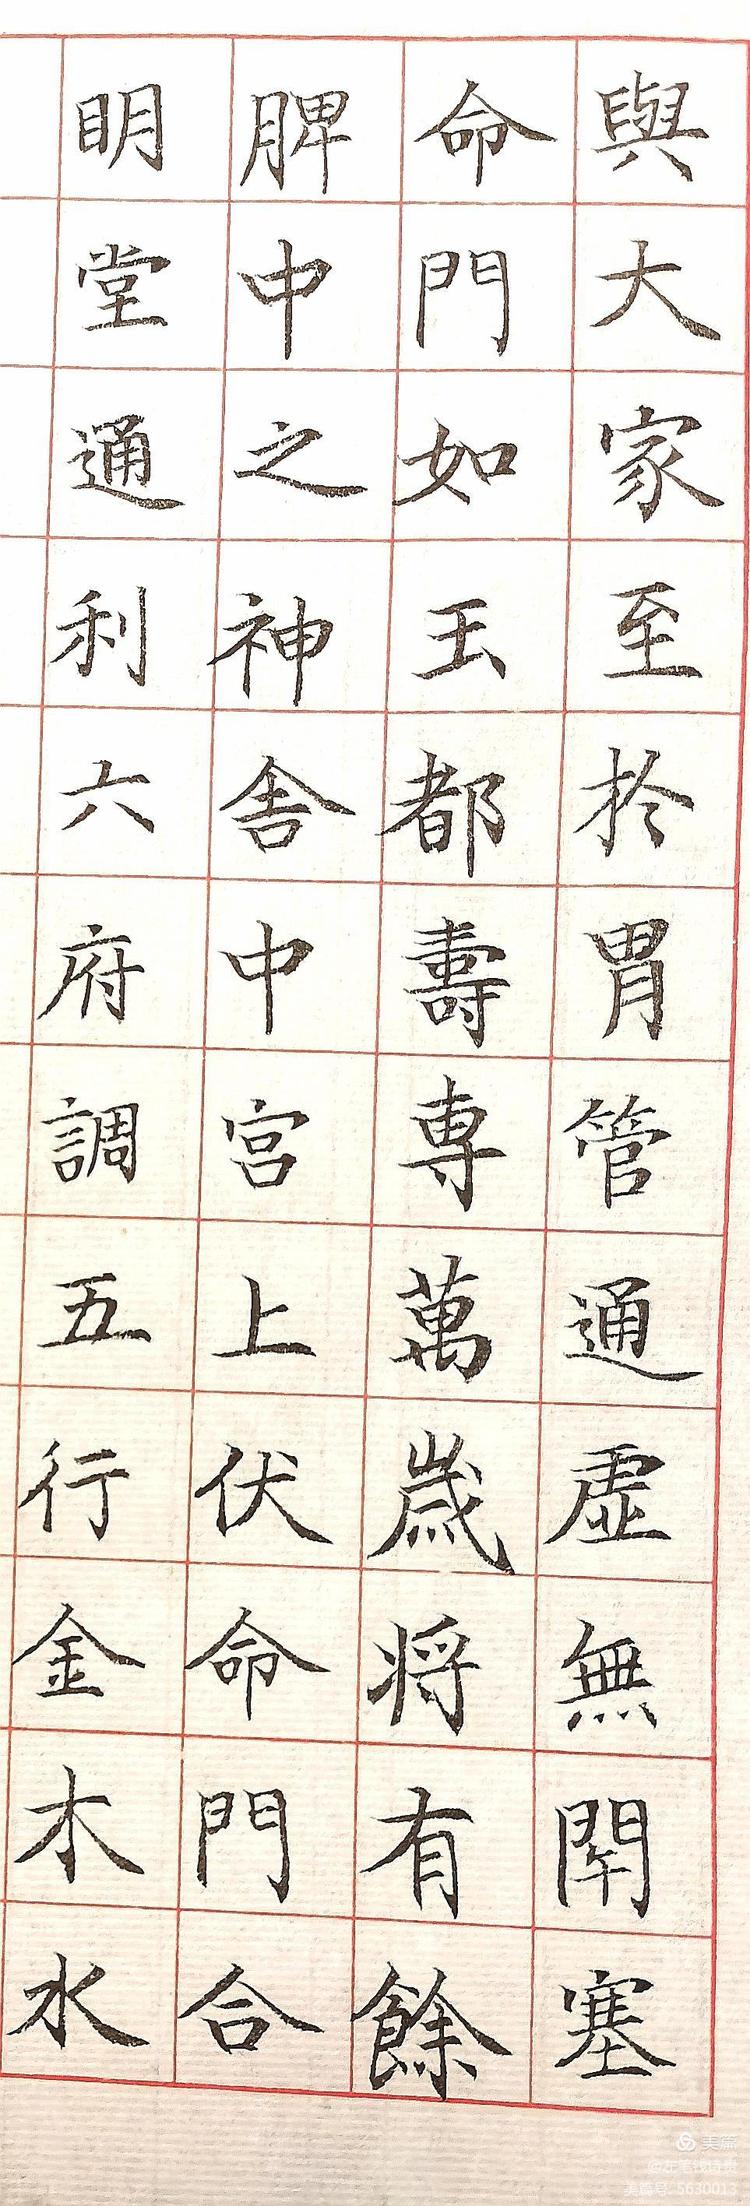 與大家至於胃管通虛無閇塞
命門如玉都壽專萬歲将有餘
脾中之神舍中宫上伏命門合
明堂通利六府調五行金木水
美篇
美篇号: 5630013